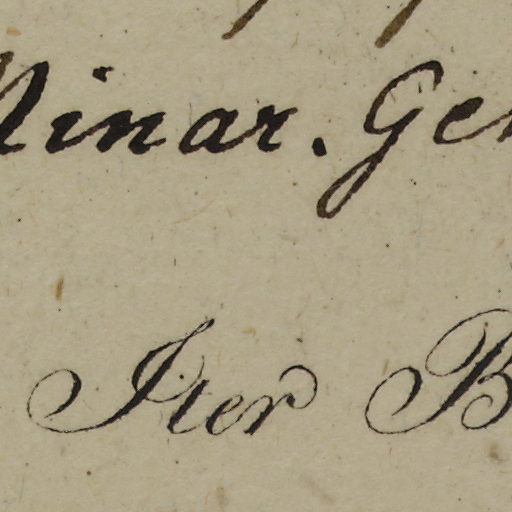 Minar. Ge
Iter B